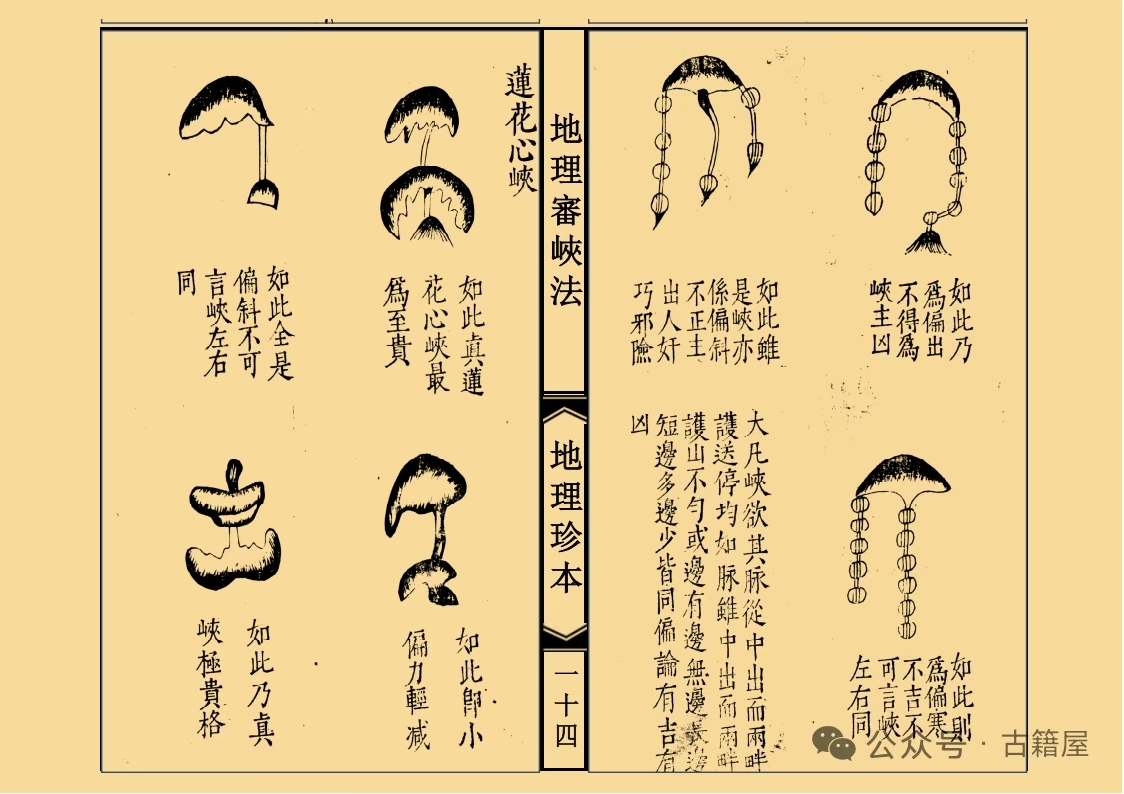 如此乃
爲偏出
不得爲
峽主凶
如此雖
是峽亦
係偏斜
不正主
出人奸
巧邪險
如此則
爲偏寒
不吉不
可言峽
左右同
大凡峽欲其脈從中出而兩畔
護送停均如脈雖中出而兩畔
護山不勻或邊有邊無邊長邊
短邊多邊少皆同偏論有吉有
凶
地理審峽法
地理珍本
一十四
蓮花心峽
如此真蓮
花心峽最
爲至貴
如此全是
偏斜不可
言峽左右
同
如此卽小
偏力輕减
如此乃真
峽極貴格
公众号 · 古籍屋